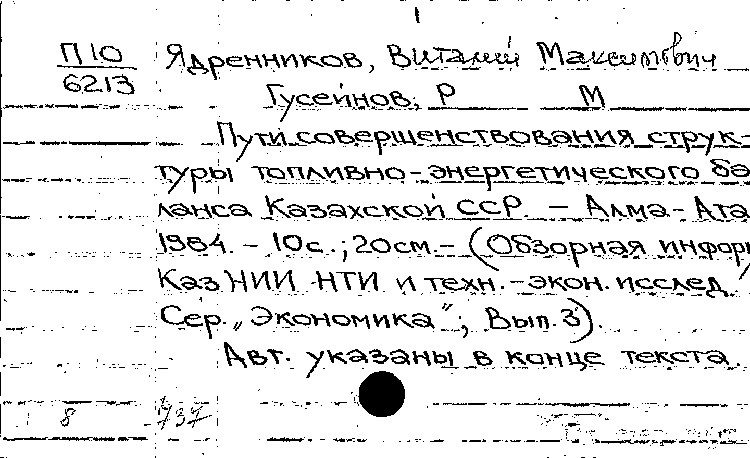 П10 Ядренников, Виталий Максимович
6213 Гусейнов, Р М
Пути совершенствования струк-
туры топливно-энергетического ба
ланса Казахской ССР. – Алма-Ата
1984. – 10с.; 20см. – (Обзорная информ
КазНИИ НТИ и техн.-экон. исслед
Сер. „Экономика"; Вып. 3).
Авт. указаны в конце текста.
8 737